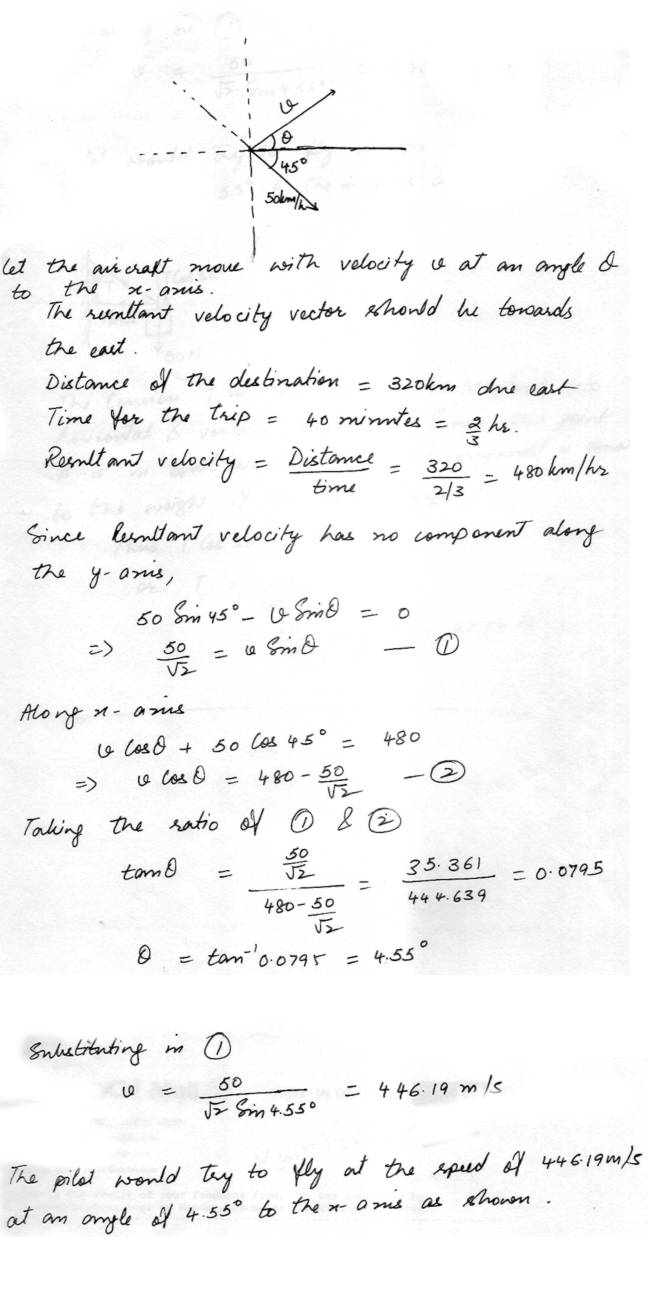 v
θ
45°
50km/h
Let the aircraft move with velocity v at an angle θ
to the x-axis.
The resultant velocity vector should be towards
the east.
Distance of the destination = 320km due east
Time for the trip = 40 minutes = 2/3 hs.
Resultant velocity = Distance/time = 320/2/3 = 480 km/hr
Since Resultant velocity has no component along
the y-axis,
50 Sin 45° - v Sinθ = 0
=> 50/√2 = v Sinθ — ①
Along x-axis
v Cosθ + 50 Cos 45° = 480
=> v Cosθ = 480 - 50/√2 — ②
Taking the ratio of ① & ②
tanθ = 50/√2 / 480 - 50/√2 = 35.361/444.639 = 0.0795
θ = tan⁻¹ 0.0795 = 4.55°
Substituting in ①
v = 50/√2 Sin 4.55° = 446.19 m/s
The pilot would try to fly at the speed of 446.19m/s
at an angle of 4.55° to the x-axis as shown.